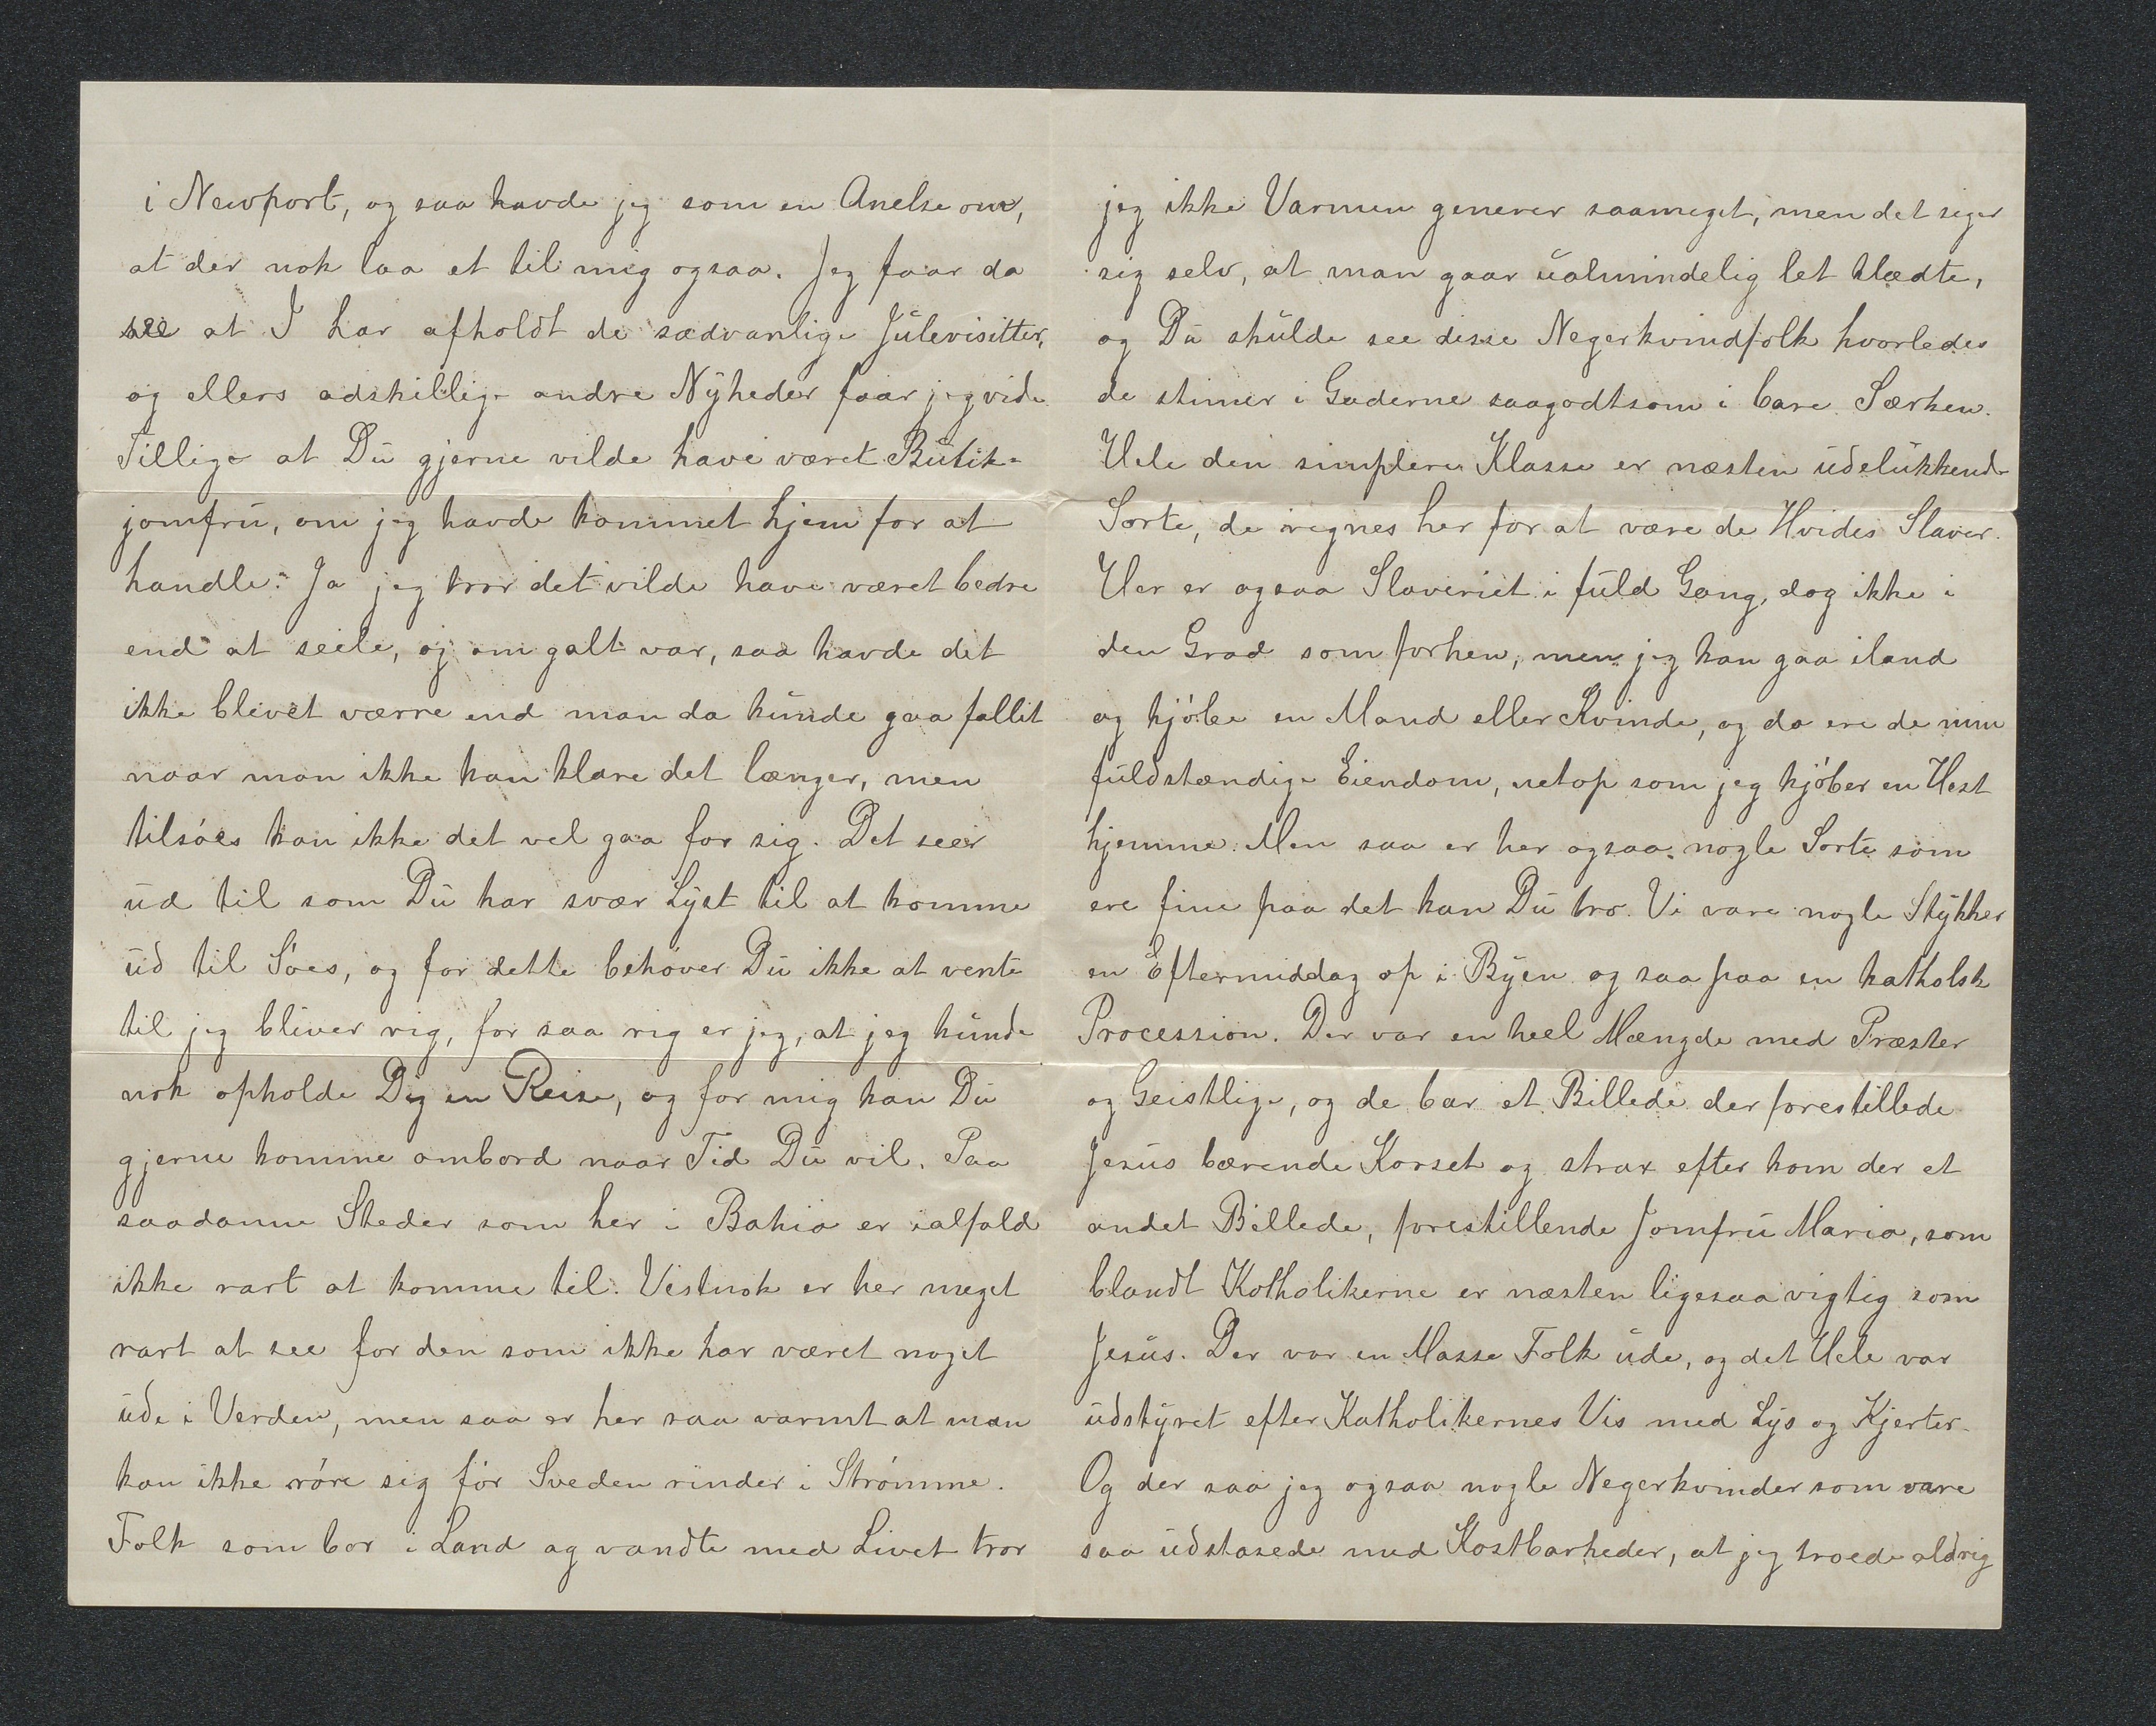 i Newport, og saa havde jeg som en Anelse om,
at der nok laa et til mig ogsaa. Jeg faar da
see at I har afholdt de sædvanlige Julevisitter,
og ellers adskillige andre Nyheder faar jeg vide.
Tillige at Du gjerne vilde have været Butik-
jomfru, om jeg havde kommet hjem for at
handle. Ja jeg tror det vilde have været bedre
end at seile, og om galt var, saa havde det
ikke blivet værre end man da kunde gaa fallit
naar man ikke kan klare det længer, men
tilsøes kan ikke det vel gaa for sig. Det seer
ud til som Du har svær Lyst til at komme
ud til Søes, og for dette behøver Du ikke at vente
til jeg bliver rig, for saa rig er jeg, at jeg kunde
nok opholde Dig en Reise, og for mig kan Du
gjerne komme ombord naar Tid Du vil. Paa
saadanne Steder som her i Bahia er ialfald
ikke rart at komme til. Vistnok er her meget
rart at see for den som ikke har været noget
ude i Verden, men saa er her saa varmt at man
kan ikke røre sig før Sveden rinder i Strømme.
Folk som bor i Land og vandte med Livet tror
jeg ikke Varmen generer saameget, men det siger
sig selv, at man gaar ualmindelig let klædte,
og Du skulde see disse Negerkvindfolk hvorledes
de stimer i Gaderne saagodtsom i bare Særken.
Hele den simplere Klasse er næsten udelukkende
Sorte, de regnes her for at være de Hvides Slaver.
Her er ogsaa Slaveriet i fuld Gang, dog ikke i
den Grad som forhen, men jeg kan gaa iland
og kjøbe en Mand eller Kvinde, og da ere de min
fuldstændige Eiendom, netop som jeg kjøber en Hest
hjemme. Men saa er her ogsaa nogle Sorte som
ere fine paa det kan Du tro. Vi vare nogle Stykker
en Eftermiddag op i Byen og saa paa en katholsk
Procession. Der var en heel Mængde med Præster
og Geistlige, og de bar et Billede der forestillede
Jesus bærende Korset og strax efter kom der et
andet Billede, forestillende Jomfru Maria, som
blandt Katholikerne er næsten ligesaa vigtig som
Jesus. Der var en Masse Folk ude, og det Hele var
udstyret efter Katholikernes Vis med Lys og Kjerter.
Og der saa jeg ogsaa nogle Negerkvinder som vare
saa udstasede med Kostbarheder, at jeg troede aldrig